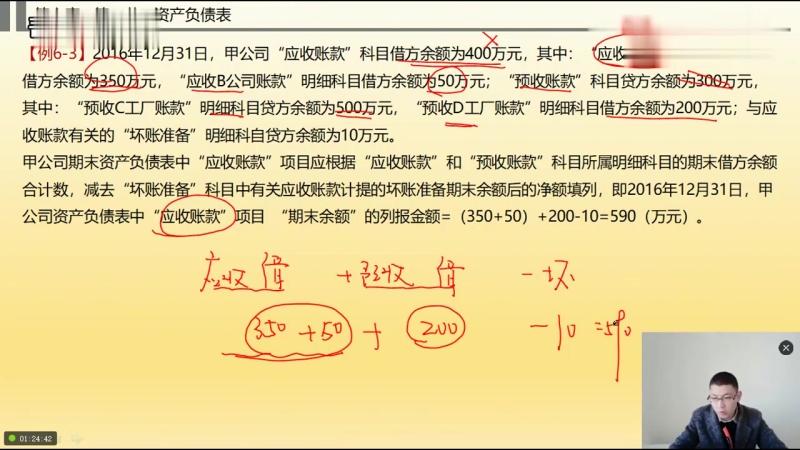 资产负债表
【例6-3】2016年12月31日，甲公司“应收账款”科目借方余额为400万元，其中：“应收
借方余额为350万元，“应收B公司账款”明细科目借方余额为50万元；“预收账款”科目贷方余额为300万元，
其中：“预收C工厂账款”明细科目贷方余额为500万元，“预收D工厂账款”明细科目借方余额为200万元；与应
收账款有关的“坏账准备”明细科自贷方余额为10万元。
甲公司期末资产负债表中“应收账款”项目应根据“应收账款”和“预收账款”科目所属明细科目的期末借方余额
合计数，减去“坏账准备”科目中有关应收账款计提的坏账准备期末余额后的净额填列，即2016年12月31日，甲
公司资产负债表中“应收账款”项目 “期末余额”的列报金额=（350+50）+200-10=590（万元）。
应收 借 + 预收 借 - 坏
350 + 50 + 200 - 10 = 590
01:24:42